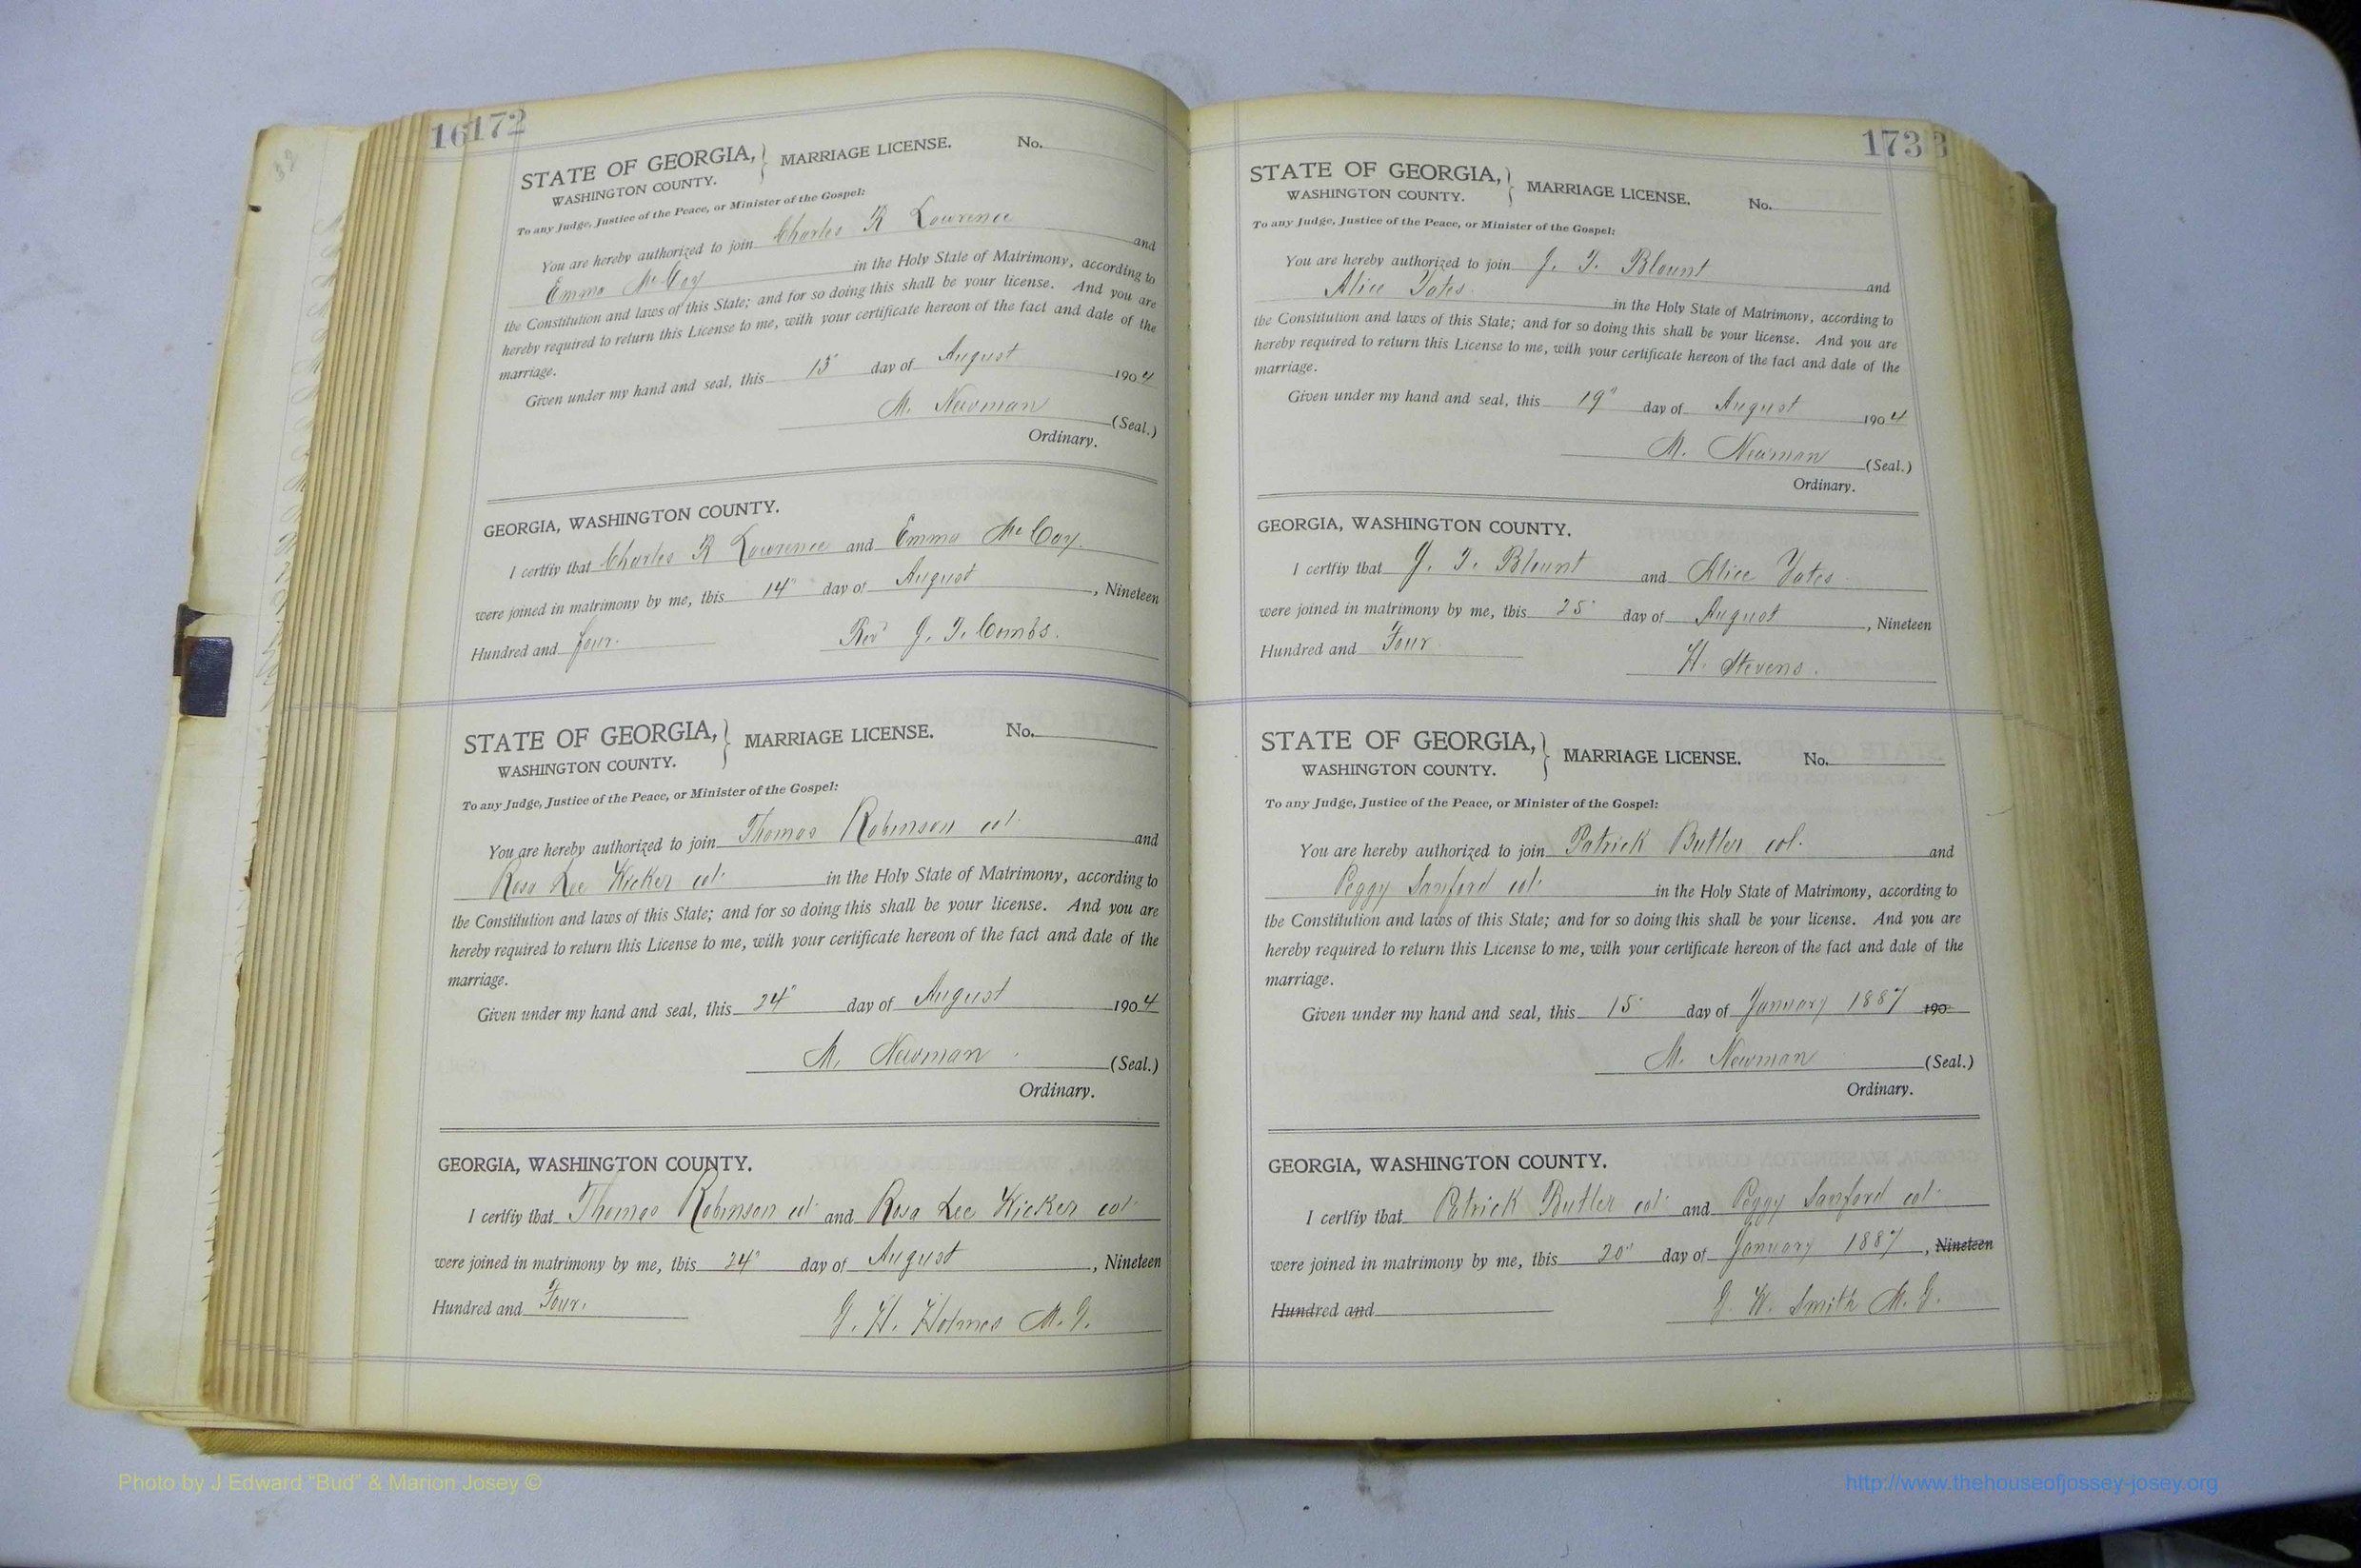 16172
STATE OF GEORGIA, } MARRIAGE LICENSE. No.
WASHINGTON COUNTY.
To any Judge, Justice of the Peace, or Minister of the Gospel:
You are hereby authorized to join Charles R Lawrence and
Emma McCoy in the Holy State of Matrimony, according to
the Constitution and laws of this State; and for so doing this shall be your license. And you are
hereby required to return this License to me, with your certificate hereon of the fact and date of the
marriage.
Given under my hand and seal, this 13" day of August 1904
M. Newman (Seal.)
Ordinary.
GEORGIA, WASHINGTON COUNTY.
I certfiy that Charles R Lawrence and Emma McCoy.
were joined in matrimony by me, this 14" day of August, Nineteen
Hundred and four. Rev J. T. Combs.
STATE OF GEORGIA, } MARRIAGE LICENSE. No.
WASHINGTON COUNTY.
To any Judge, Justice of the Peace, or Minister of the Gospel:
You are hereby authorized to join Thomas Robinson col. and
Rosa Lee Kicker col. in the Holy State of Matrimony, according to
the Constitution and laws of this State; and for so doing this shall be your license. And you are
hereby required to return this License to me, with your certificate hereon of the fact and date of the
marriage.
Given under my hand and seal, this 24" day of August 1904
M. Newman (Seal.)
Ordinary.
GEORGIA, WASHINGTON COUNTY.
I certfiy that Thomas Robinson col. and Rosa Lee Kicker col.
were joined in matrimony by me, this 24" day of August, Nineteen
Hundred and Four. G. H. Holmes M. G.
173
STATE OF GEORGIA, } MARRIAGE LICENSE. No.
WASHINGTON COUNTY.
To any Judge, Justice of the Peace, or Minister of the Gospel:
You are hereby authorized to join J. T. Blount and
Alice Yates in the Holy State of Matrimony, according to
the Constitution and laws of this State; and for so doing this shall be your license. And you are
hereby required to return this License to me, with your certificate hereon of the fact and date of the
marriage.
Given under my hand and seal, this 19" day of August 1904
M. Newman (Seal.)
Ordinary.
GEORGIA, WASHINGTON COUNTY.
I certfiy that J. T. Blount and Alice Yates
were joined in matrimony by me, this 25" day of August, Nineteen
Hundred and Four H. Stevens.
STATE OF GEORGIA, } MARRIAGE LICENSE. No.
WASHINGTON COUNTY.
To any Judge, Justice of the Peace, or Minister of the Gospel:
You are hereby authorized to join Patrick Butler col. and
Peggy Sanford col. in the Holy State of Matrimony, according to
the Constitution and laws of this State; and for so doing this shall be your license. And you are
hereby required to return this License to me, with your certificate hereon of the fact and date of the
marriage.
Given under my hand and seal, this 15" day of January 1887 190
M. Newman (Seal.)
Ordinary.
GEORGIA, WASHINGTON COUNTY.
I certfiy that Patrick Butler col. and Peggy Sanford col.
were joined in matrimony by me, this 20" day of January 1887, Nineteen
Hundred and G. W. Smith M. G.
Photo by J Edward "Bud" & Marion Josey ©
http://www.thehouseofjossey-josey.org